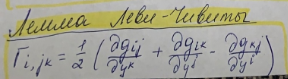 Лемма Леви-Чивиты
Γi,jk = 1/2 (∂gij/∂yᵏ + ∂gik/∂yʲ - ∂gkj/∂yⁱ)